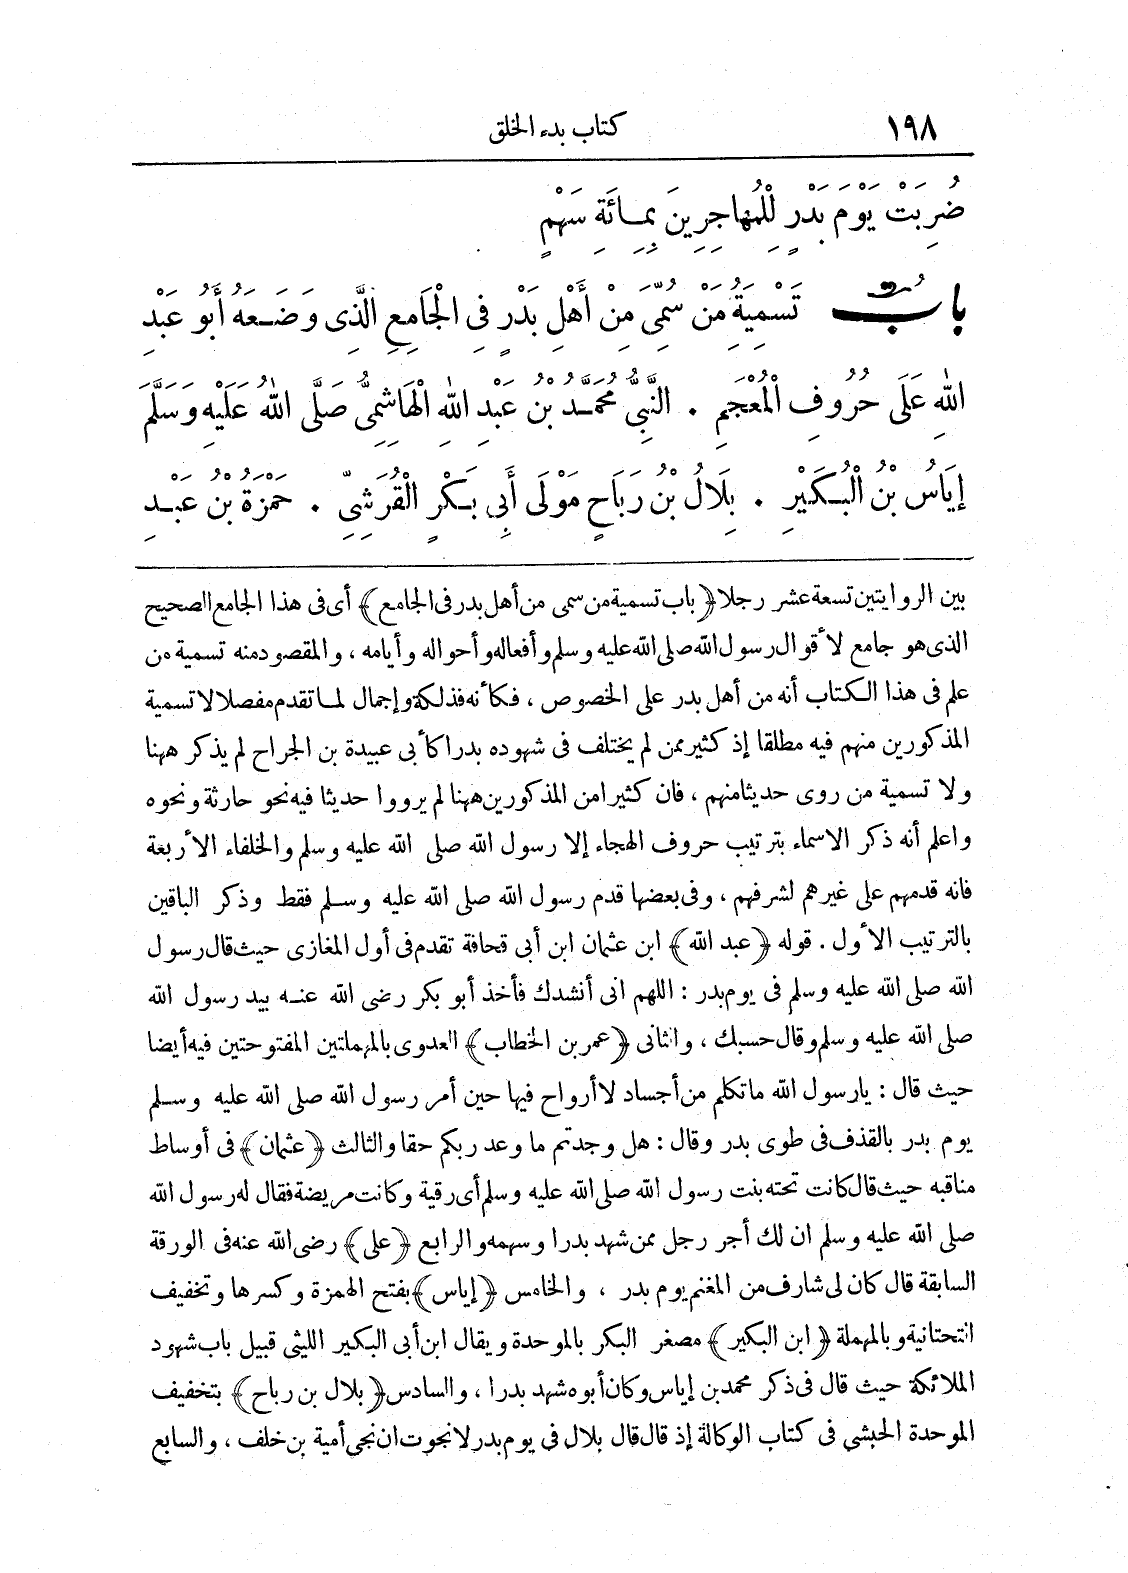 ١٩٨ كتاب بدء الخلق
ضُرِبَتْ يَوْمَ بَدْرٍ لِلْمُهَاجِرِينَ بِمِائَةِ سَهْمٍ
بابُ تَسْمِيَةُ مَنْ سُمِّيَ مِنْ أَهْلِ بَدْرٍ فِي الْجَامِعِ الَّذِي وَضَعَهُ أَبُو عَبْدِ
اللهِ عَلَى حُرُوفِ الْمُعْجَمِ . النَّبِيُّ مُحَمَّدُ بْنُ عَبْدِ اللهِ الْهَاشِمِيُّ صَلَّى اللهُ عَلَيْهِ وَسَلَّمَ
إِيَاسُ بْنُ الْبُكَيْرِ . بِلَالُ بْنُ رَبَاحٍ مَوْلَى أَبِي بَكْرٍ الْقُرَشِيِّ . حَمْزَةُ بْنُ عَبْدِ
بين الروايتين تسعة عشر رجلا ﴿باب تسمية من سمى من أهل بدر فى الجامع﴾ أى فى هذا الجامع الصحيح
الذى هو جامع لأقوال رسول الله صلى الله عليه وسلم وأفعاله وأحواله وأيامه ، والمقصود منه تسمية من
علم فى هذا الكتاب أنه من أهل بدر على الخصوص ، فكأنه فذلكة وإجمال لما تقدم مفصلا لا تسمية
المذكورين منهم فيه مطلقا إذ كثير ممن لم يختلف فى شهوده بدرا كأبى عبيدة بن الجراح لم يذكر ههنا
ولا تسمية من روى حديثا منهم ، فان كثيرا من المذكورين ههنا لم يرووا حديثا فيه نحو حارثة ونحوه
واعلم أنه ذكر الاسماء بترتيب حروف الهجاء إلا رسول الله صلى الله عليه وسلم والخلفاء الأربعة
فانه قدمهم على غيرهم لشرفهم ، وفى بعضها قدم رسول الله صلى الله عليه وسلم فقط وذكر الباقين
بالترتيب الأول . قوله ﴿عبد الله﴾ ابن عثمان ابن أبى قحافة تقدم فى أول المغازى حيث قال رسول
الله صلى الله عليه وسلم فى يوم بدر : اللهم انى أنشدك فأخذ أبو بكر رضى الله عنه بيد رسول الله
صلى الله عليه وسلم وقال حسبك ، والثانى ﴿عمر بن الخطاب﴾ العدوى بالمهملتين المفتوحتين فيه أيضا
حيث قال : يارسول الله ما تكلم من أجساد لا أرواح فيها حين أمر رسول الله صلى الله عليه وسلم
يوم بدر بالقذف فى طوى بدر وقال : هل وجدتم ما وعد ربكم حقا والثالث ﴿عثمان﴾ فى أوساط
مناقبه حيث قال كانت تحته بنت رسول الله صلى الله عليه وسلم أى رقية وكانت مريضة فقال له رسول الله
صلى الله عليه وسلم ان لك أجر رجل ممن شهد بدرا وسهمه والرابع ﴿على﴾ رضى الله عنه فى الورقة
السابقة قال كان لى شارف من المغنم يوم بدر ، والخامس ﴿إياس﴾ بفتح الهمزة وكسرها وتخفيف
التحتانية وبالمهملة ﴿ابن البكير﴾ مصغر البكر بالموحدة ويقال ابن أبى البكير الليثى قبيل باب شهود
الملائكة حيث قال فى ذكر محمد بن إياس وكان أبوه شهد بدرا ، والسادس ﴿بلال بن رباح﴾ بتخفيف
الموحدة الحبشى فى كتاب الوكالة إذ قال قال بلال فى يوم بدر لا نجوت ان نجى أمية بن خلف ، والسابع